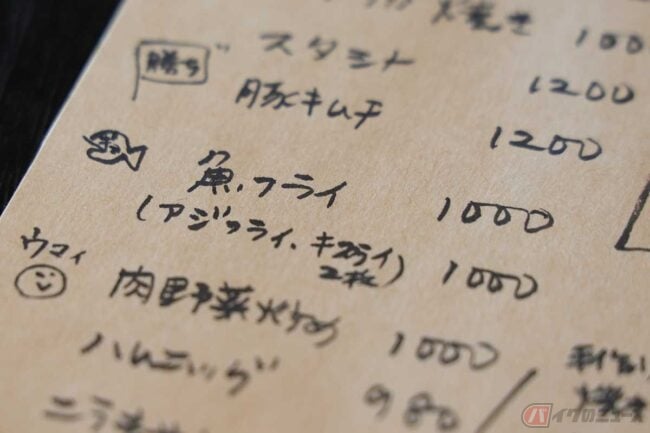 焼き 100
勝ち スタミナ 1200
豚キムチ 1200
魚フライ 1000
(アジフライ、キスフライ 2枚) 1000
ウマイ
肉野菜炒め 1000
ハムエッグ 980
ニラ
バイクのニュース